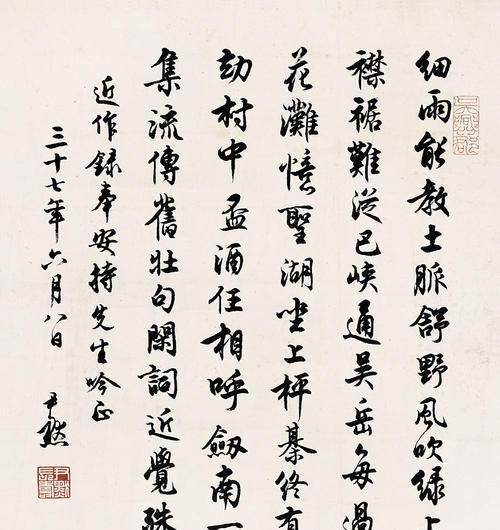 細雨能教土脈舒野風吹綠上
襟裾難從巴峽通吳岳每過
花灘憶聖湖坐上枰棊終有
劫村中盃酒任相呼劔南一
集流傳舊壯句閑詞近覺殊
近作録奉安持先生吟正
三十七年六月八日
尹默